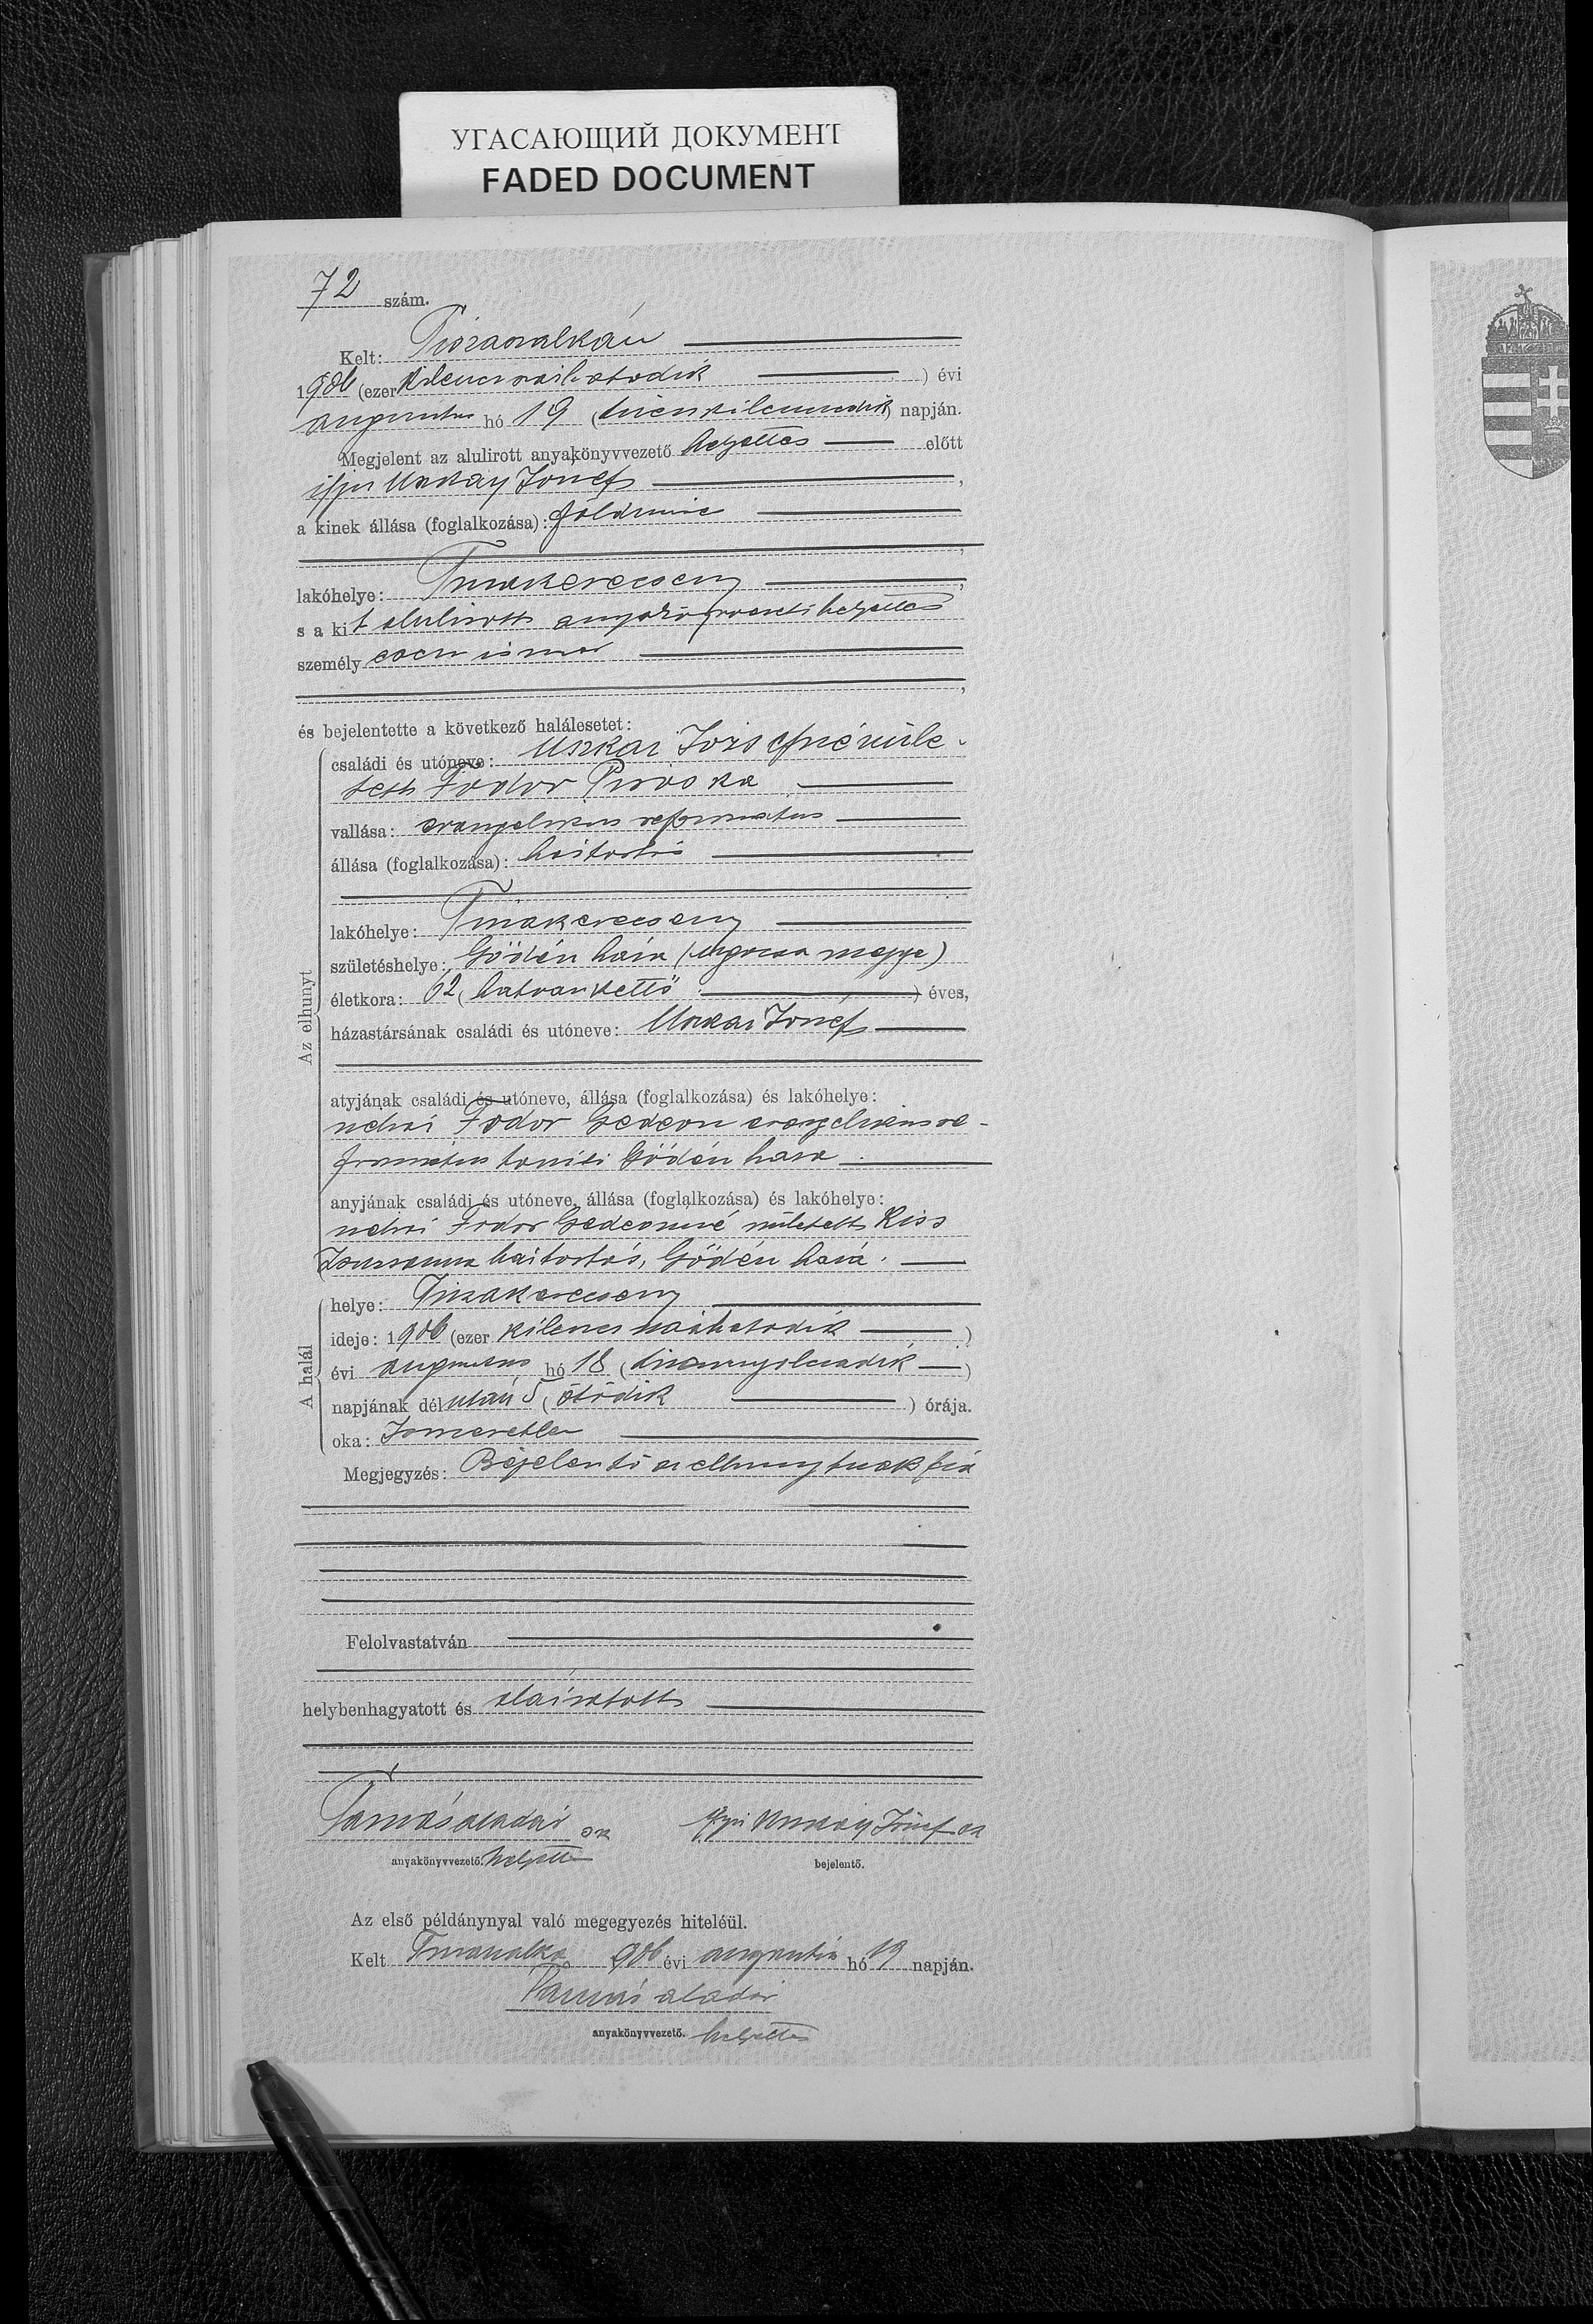 УГАСАЮЩИЙ ДОКУМЕНТ
FADED DOCUMENT
72 szám.
Kelt: Tiszaszalkán
1906 (ezer kilenczszázhatodik ) évi
augusztus hó 19 (tizenkilenczedik) napján.
Megjelent az alulirott anyakönyvvezető helyettes előtt
ifju Uszkay József,
a kinek állása (foglalkozása): földmíves
lakóhelye: Tiszakerecseny,
s a kit alulirott anyakönyvvezető helyettes
személyesen ismer,
és bejelentette a következő halálesetet:
Az elhunyt
családi és utóneve: Uszkai Józsefné szüle-
tett Fodor Piroska
vallása: evangelikus reformatus
állása (foglalkozása): háztartás
lakóhelye: Tiszakerecseny
születéshelye: Gödén háza (Ugocsa megye)
életkora: 62 (hatvankettő ) éves,
házastársának családi és utóneve: Uszkai József
atyjának családi és utóneve, állása (foglalkozása) és lakóhelye:
néhai Fodor Gedeon evangelikus re-
formátus tanító Gödén háza
anyjának családi és utóneve, állása (foglalkozása) és lakóhelye:
néhai Fodor Gedeonné született Kiss
Zsuzsanna háztartás, Gödén háza.
A halál
helye: Tiszakerecseny
ideje: 1906 (ezer kilenczszázhatodik )
évi augusztus hó 18 (tizennyolczadik )
napjának délután 5 (ötödik ) órája.
oka: Ismeretlen
Megjegyzés: Bejelentő az elhunytnak fia
Felolvastatván
helybenhagyatott és aláiratott
Tamás Aladár sk
ifju Uszkay József sk
anyakönyvvezető. helyettes
bejelentő.
Az első példánynyal való megegyezés hiteléül.
Kelt Tiszaszalka 906 évi augusztus hó 19 napján.
Tamás Aladár
anyakönyvvezető. helyettes